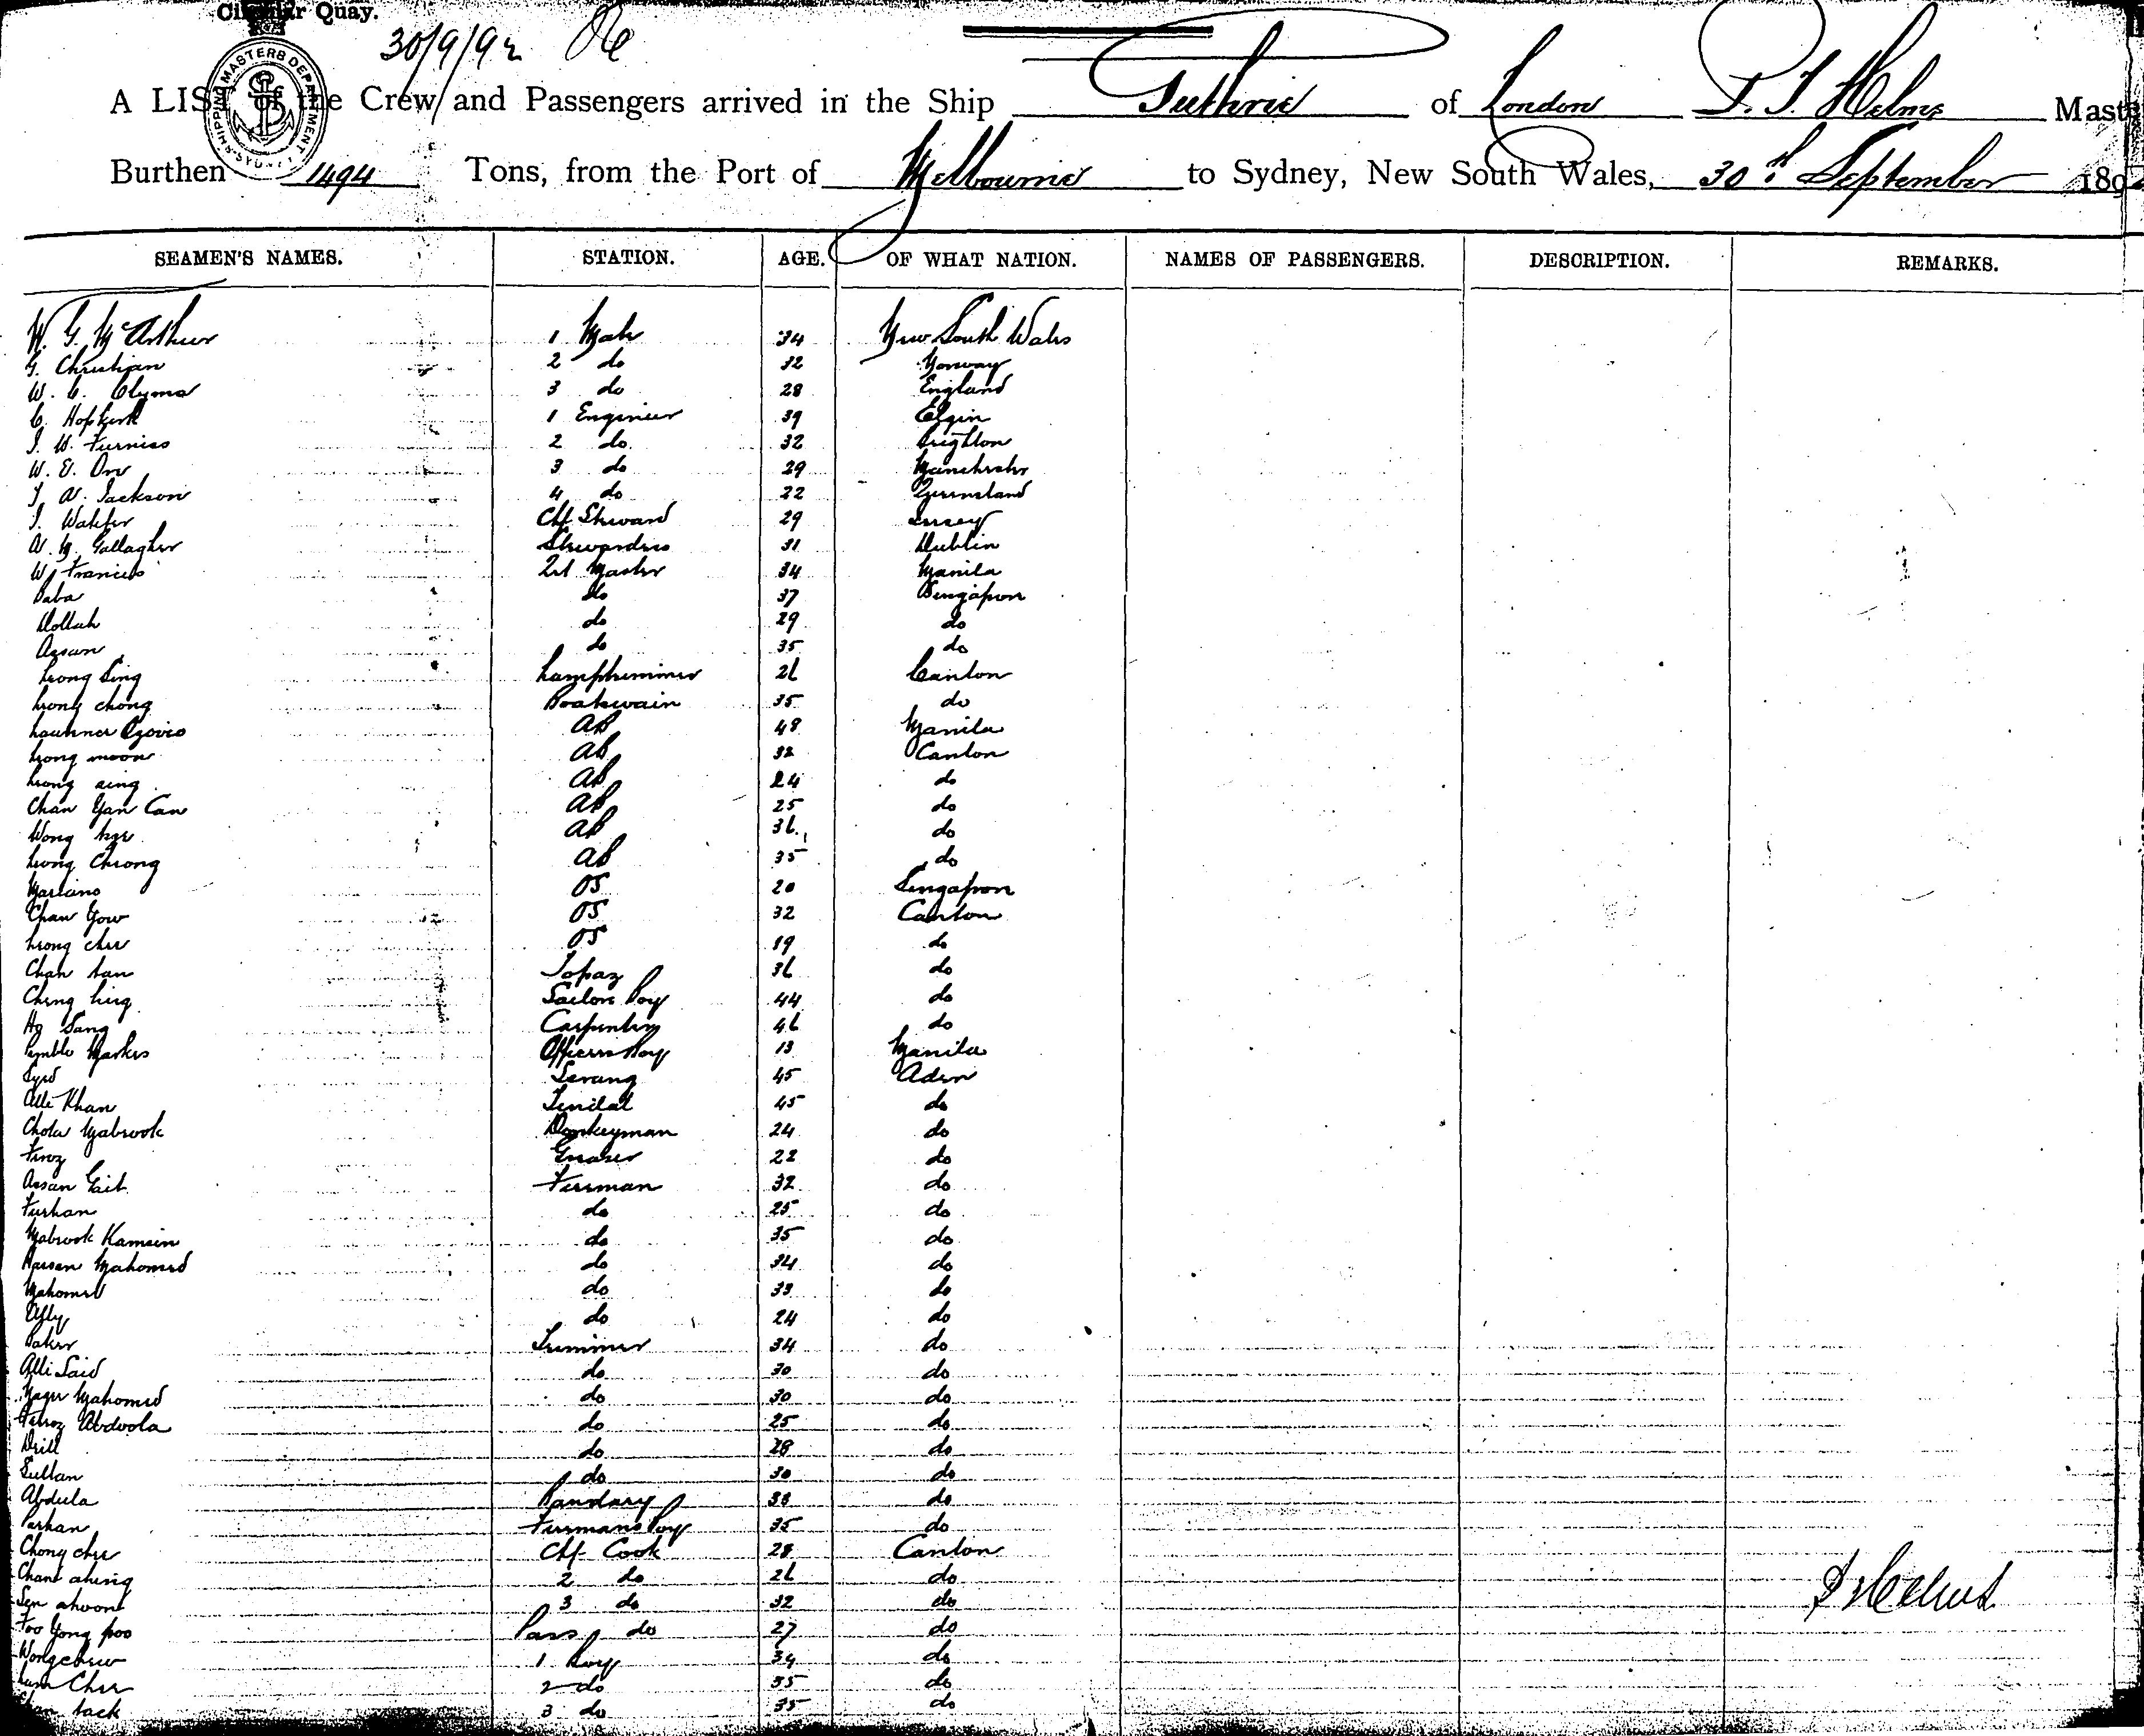 Circular Quay.
30/9/92
SHIPPING MASTERS DEPARTMENT SYDNEY
A LIST of the Crew and Passengers arrived in the Ship Guthrie of London Helms Master
Burthen 1494 Tons, from the Port of Melbourne to Sydney, New South Wales, 30th September 189
SEAMEN'S NAMES. STATION. AGE. OF WHAT NATION. NAMES OF PASSENGERS. DESCRIPTION. REMARKS.
W. G. McArthur 1 Mate 34 New South Wales
G. Christian 2 do 32 Norway
W. C. Clymo 3 do 28 England
C. Hopkirk 1 Engineer 39 Elgin
J. W. Furniss 2 do 32 Brighton
W. E. Orr 3 do 29 Manchester
T. A. Jackson 4 do 22 Queensland
J. Walker Chf Steward 29 Jersey
A. M. Gallagher Stewardess 31 Dublin
W. Francis Qrt Master 34 Manila
Baba do 37 Singapore
Dollah do 29 do
Assan do 35 do
Leong Sing Lamptrimmer 26 Canton
Leong chong Boatswain 35 do
AB 48 Manila
Leong moon AB 32 Canton
Leong aing AB 24 do
Chan Yan Can AB 25 do
Wong AB 36 do
Leong Cheong AB 35 do
Mariano OS 20 Singapore
Chan Yow OS 32 Canton
Leong chee OS 19 do
Chan San Topaz 36 do
Cheng Sailors Boy 44 do
Ho Sang Carpenter 46 do
Markes Officers Boy 13 Manila
Syed Serang 45 Aden
Alli Khan Tindal 45 do
Mabrook Donkeyman 24 do
Feroz Greaser 22 do
Assan Gait Fireman 32 do
Furhan do 25 do
Mabrook Kamsin do 35 do
Hassan Mahomed do 34 do
Mahomed do 33 do
Ally do 24 do
Baker Trimmer 34 do
Alli Said do 30 do
Mahomed do 30 do
Feroz Abdoola do 25 do
do 28 do
Sultan do 30 do
Abdula Bandary 38 do
Farhan Firemans Boy 35 do
Chong chee Chf Cook 28 Canton
Chant ahing 2 do 26 do
Sen ahoont 3 do 32 do
Foo Yong poo Pass do 27 do
Wongchew 1 Boy 34 do
Chee 2 do 35 do
tack 3 do 35 do